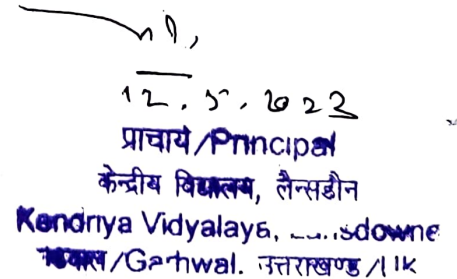 12.5.2023
प्राचार्य/Principal
केन्द्रीय विद्यालय, लैन्सडौन
Kendriya Vidyalaya,
/Garhwal. उत्तराखण्ड/UK